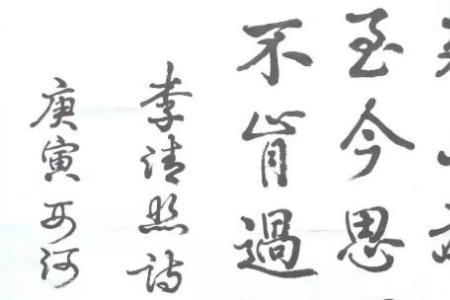 至今思
不肯過
李清照詩
庚寅